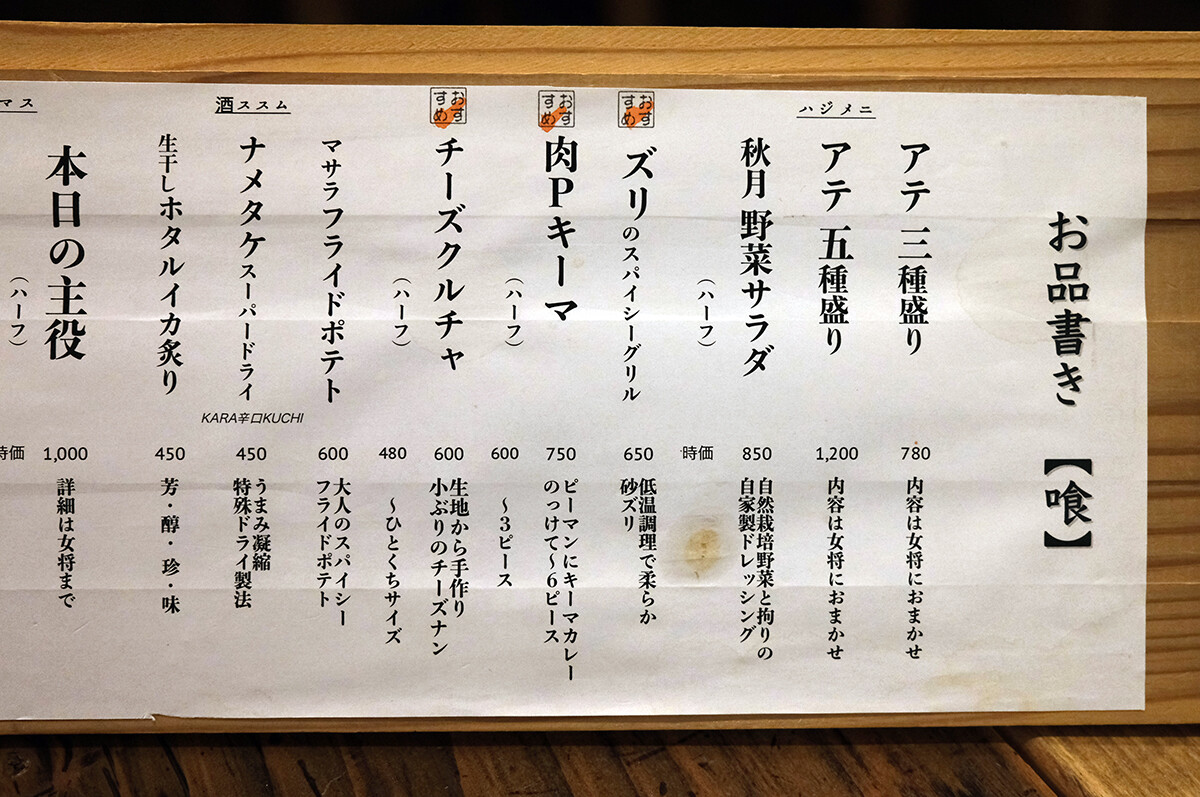 お品書き【喰】
ハジメニ
アテ 三種盛り
780
内容は女将におまかせ
アテ 五種盛り
1,200
内容は女将におまかせ
秋月 野菜サラダ
850
自然栽培野菜と拘りの
自家製ドレッシング
(ハーフ)
時価
おす
すめ
ズリのスパイシーグリル
650
低温調理で柔らか
砂ズリ
おす
すめ
肉Pキーマ
750
ピーマンにキーマカレー
のっけて～6ピース
(ハーフ)
600
～3ピース
おす
すめ
チーズクルチャ
600
生地から手作り
小ぶりのチーズナン
(ハーフ)
480
～ひとくちサイズ
マサラフライドポテト
600
大人のスパイシー
フライドポテト
酒ススム
ナメタケスーパードライ
KARA辛口KUCHI
450
うまみ凝縮
特殊ドライ製法
生干しホタルイカ炙り
450
芳・醇・珍・味
マス
本日の主役
1,000
詳細は女将まで
(ハーフ)
時価